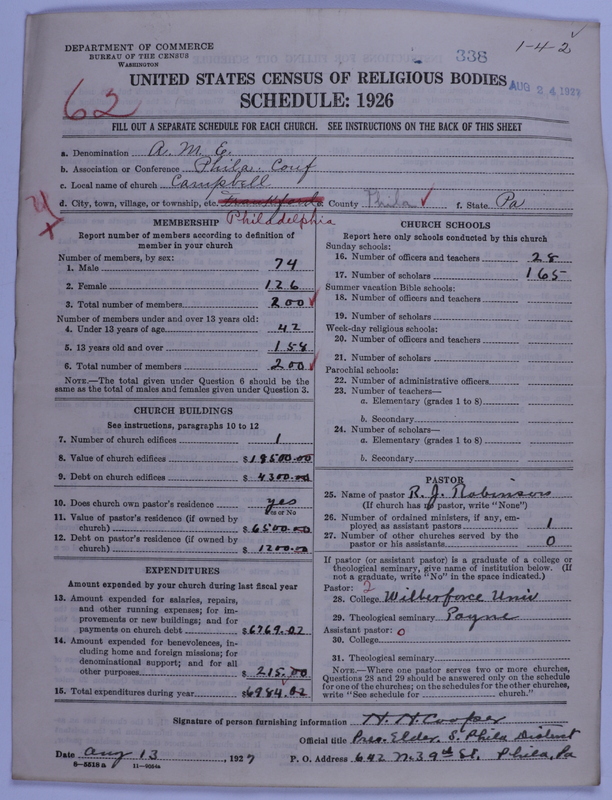 DEPARTMENT OF COMMERCE
BUREAU OF THE CENSUS
WASHINGTON
338
1-4-2
UNITED STATES CENSUS OF RELIGIOUS BODIES
AUG 24 1927
SCHEDULE: 1926
62
FILL OUT A SEPARATE SCHEDULE FOR EACH CHURCH. SEE INSTRUCTIONS ON THE BACK OF THIS SHEET
a. Denomination A. M. E.
b. Association or Conference Phila. Conf
c. Local name of church Campbell
d. City, town, village, or township, etc. County Phila f. State Pa
Philadelphia
MEMBERSHIP
Report number of members according to definition of
member in your church
Number of members, by sex:
1. Male 74
2. Female 126
3. Total number of members 200
Number of members under and over 13 years old:
4. Under 13 years of age 42
5. 13 years old and over 158
6. Total number of members 200
NOTE.—The total given under Question 6 should be the
same as the total of males and females given under Question 3.
CHURCH BUILDINGS
See instructions, paragraphs 10 to 12
7. Number of church edifices 1
8. Value of church edifices $18500.00
9. Debt on church edifices $4300.00
10. Does church own pastor's residence yes
Yes or No
11. Value of pastor's residence (if owned by
church) $6500.00
12. Debt on pastor's residence (if owned by
church) $1200.00
EXPENDITURES
Amount expended by your church during last fiscal year
13. Amount expended for salaries, repairs,
and other running expenses; for im-
provements or new buildings; and for
payments on church debt $6769.02
14. Amount expended for benevolences, in-
cluding home and foreign missions; for
denominational support; and for all
other purposes $215.00
15. Total expenditures during year $6984.02
CHURCH SCHOOLS
Report here only schools conducted by this church
Sunday schools:
16. Number of officers and teachers 28
17. Number of scholars 165
Summer vacation Bible schools:
18. Number of officers and teachers
19. Number of scholars
Week-day religious schools:
20. Number of officers and teachers
21. Number of scholars
Parochial schools:
22. Number of administrative officers
23. Number of teachers—
a. Elementary (grades 1 to 8)
b. Secondary
24. Number of scholars—
a. Elementary (grades 1 to 8)
b. Secondary
PASTOR
25. Name of pastor R. J. Robinson
(If church has no pastor, write "None")
26. Number of ordained ministers, if any, em-
ployed as assistant pastors 1
27. Number of other churches served by the
pastor or his assistants 0
If pastor (or assistant pastor) is a graduate of a college or
theological seminary, give name of institution below. (If
not a graduate, write "No" in the space indicated.)
Pastor: 2
28. College Wilberforce Univ
29. Theological seminary Payne
Assistant pastor: 0
30. College
31. Theological seminary
NOTE.—Where one pastor serves two or more churches,
Questions 28 and 29 should be answered only on the schedule
for one of the churches; on the schedules for the other churches,
write "See schedule for church."
Signature of person furnishing information H. H. Cooper
Official title Pres. Elder, S. Phila District
Date Aug 13, 1927 P. O. Address 642 N. 39th St. Phila, Pa
8-5518 a